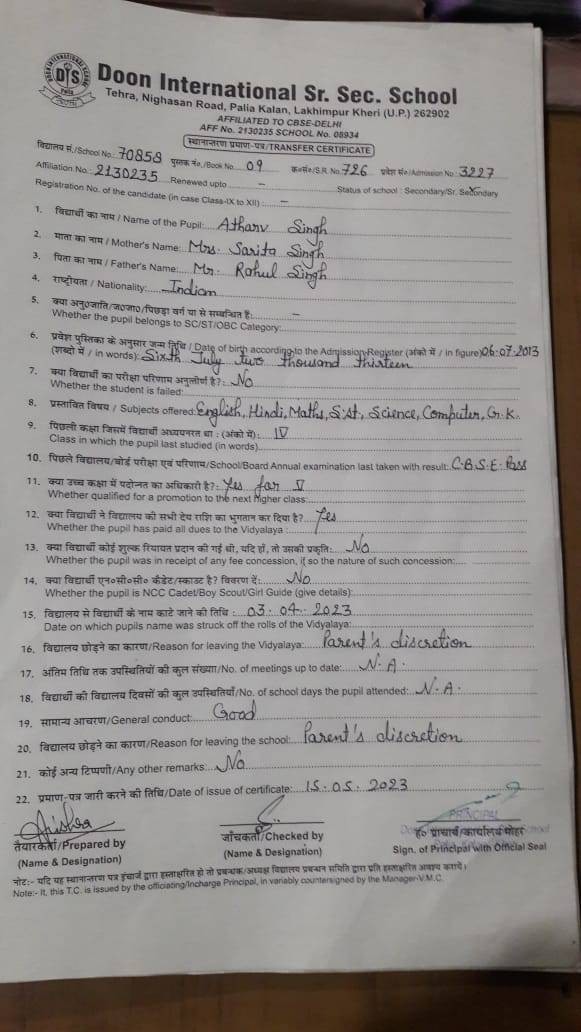 DOON INTERNATIONAL SCHOOL
DIS
Palia
Doon International Sr. Sec. School
Tehra, Nighasan Road, Palia Kalan, Lakhimpur Kheri (U.P.) 262902
AFFILIATED TO CBSE-DELHI
AFF No. 2130235 SCHOOL No. 08934
स्थानान्तरण प्रमाण-पत्र/TRANSFER CERTIFICATE
विद्यालय सं./School No.: 70858 पुस्तक नं./Book No. 09 क०सं०/S.R. No. 726 प्रवेश सं०/Admission No.: 3227
Affiliation No.: 2130235 Renewed upto - Status of school : Secondary/Sr. Secondary
Registration No. of the candidate (in case Class-IX to XII) : -
1. विद्यार्थी का नाम / Name of the Pupil: Atharv Singh
2. माता का नाम / Mother's Name: Mrs. Sarita Singh
3. पिता का नाम / Father's Name: Mr. Rahul Singh
4. राष्ट्रीयता / Nationality: Indian
5. क्या अनु०जाति/ज०जा०/पिछड़ा वर्ग या से सम्बन्धित है: -
Whether the pupil belongs to SC/ST/OBC Category:
6. प्रवेश पुस्तिका के अनुसार जन्म तिथि / Date of birth according to the Admission Register (अंको में / in figure) 06.07.2013
(शब्दो में / in words): Sixth July two thousand thirteen
7. क्या विद्यार्थी का परीक्षा परिणाम अनुत्तीर्ण है?: No
Whether the student is failed:
8. प्रस्तावित विषय / Subjects offered: English, Hindi, Maths, S.St, Science, Computer, G.K.
9. पिछली कक्षा जिसमें विद्यार्थी अध्ययनरत था : (अंको में): IV
Class in which the pupil last studied (in words)
10. पिछले विद्यालय/बोर्ड परीक्षा एवं परिणाम/School/Board Annual examination last taken with result: C.B.S.E. Pass
11. क्या उच्च कक्षा में पदोन्नत का अधिकारी है?: Yes for V
Whether qualified for a promotion to the next higher class:
12. क्या विद्यार्थी ने विद्यालय की सभी देय राशि का भुगतान कर दिया है? Yes
Whether the pupil has paid all dues to the Vidyalaya :
13. क्या विद्यार्थी कोई शुल्क रियायत प्रदान की गई थी, यदि हाँ, तो उसकी प्रकृति: No
Whether the pupil was in receipt of any fee concession, if so the nature of such concession:
14. क्या विद्यार्थी एन०सी०सी० कैडेट/स्काउट है? विवरण दें: No
Whether the pupil is NCC Cadet/Boy Scout/Girl Guide (give details):
15. विद्यालय से विद्यार्थी के नाम काटे जाने की तिथि : 03.04.2023
Date on which pupils name was struck off the rolls of the Vidyalaya:
16. विद्यालय छोड़ने का कारण/Reason for leaving the Vidyalaya: Parent's discretion
17. अंतिम तिथि तक उपस्थितियों की कुल संख्या/No. of meetings up to date: N.A.
18. विद्यार्थी की विद्यालय दिवसों की कुल उपस्थितियाँ/No. of school days the pupil attended: N.A.
19. सामान्य आचरण/General conduct: Good
20. विद्यालय छोड़ने का कारण/Reason for leaving the school: Parent's discretion
21. कोई अन्य टिप्पणी/Any other remarks: No
22. प्रमाण-पत्र जारी करने की तिथि/Date of issue of certificate: 15.05.2023
PRINCIPAL
तैयारकर्ता/Prepared by जाँचकर्ता/Checked by ह० प्राचार्य/कार्यालय मोहर
(Name & Designation) (Name & Designation) Sign. of Principal with Official Seal
नोट:- यदि यह स्थानान्तरण पत्र इंचार्ज द्वारा हस्ताक्षरित हो तो प्रबन्धक/अध्यक्ष विद्यालय प्रबन्धन समिति द्वारा प्रति हस्ताक्षरित अवश्य करायें।
Note:- It, this T.C. is issued by the officiating/Incharge Principal, in variably countersigned by the Manager-V.M.C.